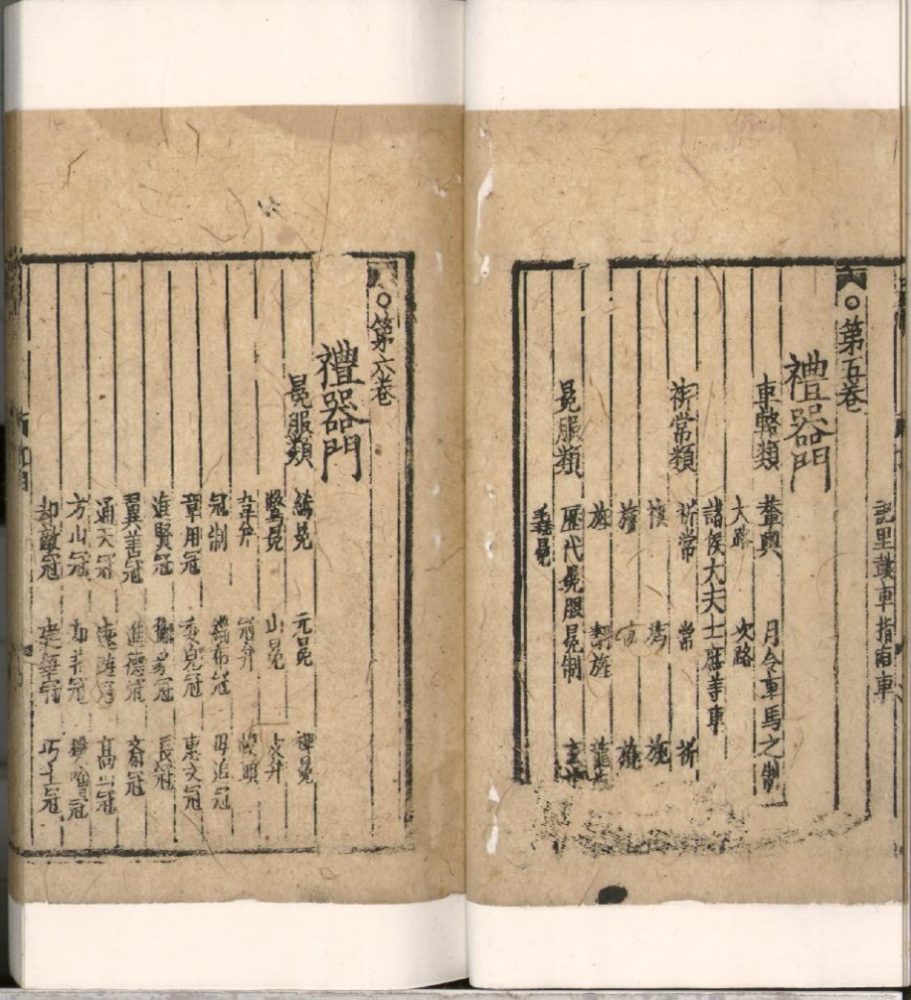 記里鼓車指南車
○第五卷
禮器門
車輅類 輦輿 月令車馬之制
大路 次路
諸侯大夫士庶等車
旂常類 旂常 常 旂
旗
旌 龍旂
冕服類 歷代冕服冕制
毳冕
○第六卷
禮器門
冕服類 絺冕 元冕 裨冕
鷩冕 山冕 皮弁
韋弁 冠弁
冠制 緇布冠 毋追冠
章甫冠 委皃冠 東文冠
進賢冠 長冠
翼善冠 進德冠 齋冠
通天冠 遠遊冠 高山冠
方山冠
却敵冠 建華冠 巧士冠